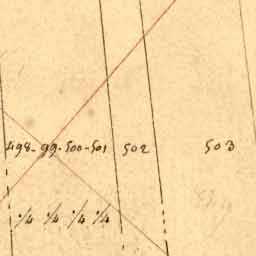 498-99-500-501 502 503
¼ ¼ ¼ ¼